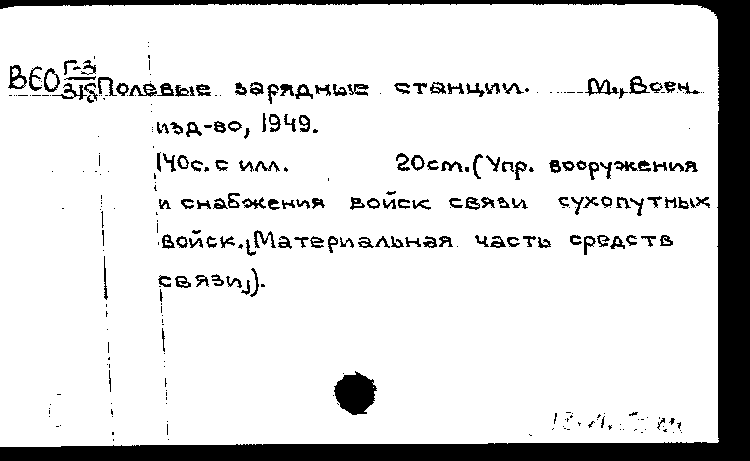 В60 Г-3/318 Полевые зарядные станции. М., Воен.
изд-во, 1949.
140с. с илл. 20см. (Упр. вооружения
и снабжения войск связи сухопутных
войск. [Материальная часть средств
связи]).